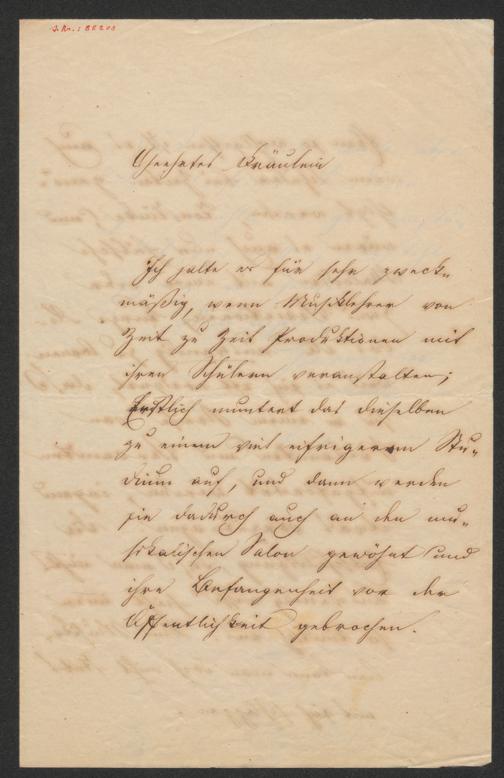 Geehrtes Fräulein
Ich halte es für sehr zweck-
mäßig, wenn Musiklehrer von
Zeit zu Zeit Produktionen mit
ihren Schülern veranstalten;
Erstlich muntert das dieselben
zu einem viel eifrigeren Stu-
dium auf, und dann werden
sie dadurch auch an den mu-
sikalischen Salon gewöhnt und
ihre Befangenheit vor der
Öffentlichkeit gebrochen.